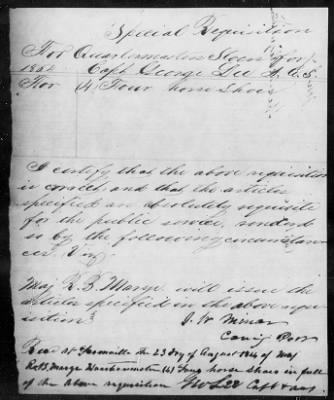 Special Requisition
For Quartermasters Stores for
1864 Capt George Lee A.Q.M.
For (4) Four horse Shoes
I certify that the above requisition
is correct and that the articles
specified are absolutely requisite
for the public service, rendered
so by the following circumstan
ces Viz
Maj R. B. Marye will issue the
articles specified in the above requ
isition
J. W. Minor
Rec'd at Farmville the 23 day of August 1864 of Maj
R. B. Marye Quartermaster (4) Four horse Shoes in full
of the above requisition Geo Lee Capt & aqm